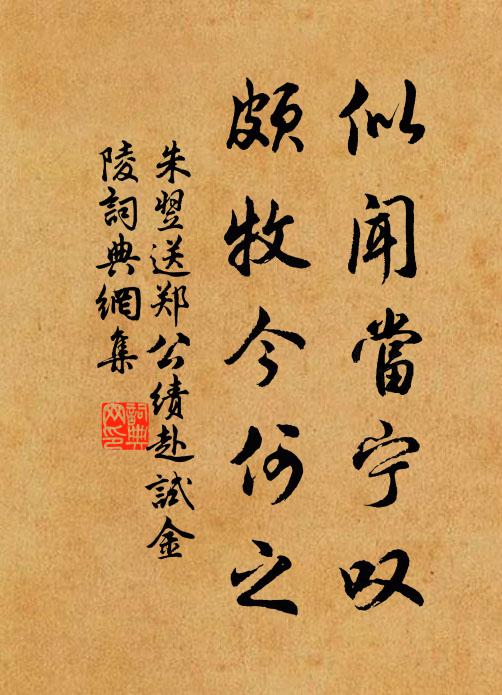 似闻當宁叹
頗牧今何之
朱翌送郑公绩赴試金
陵詞典網集
詞典網印